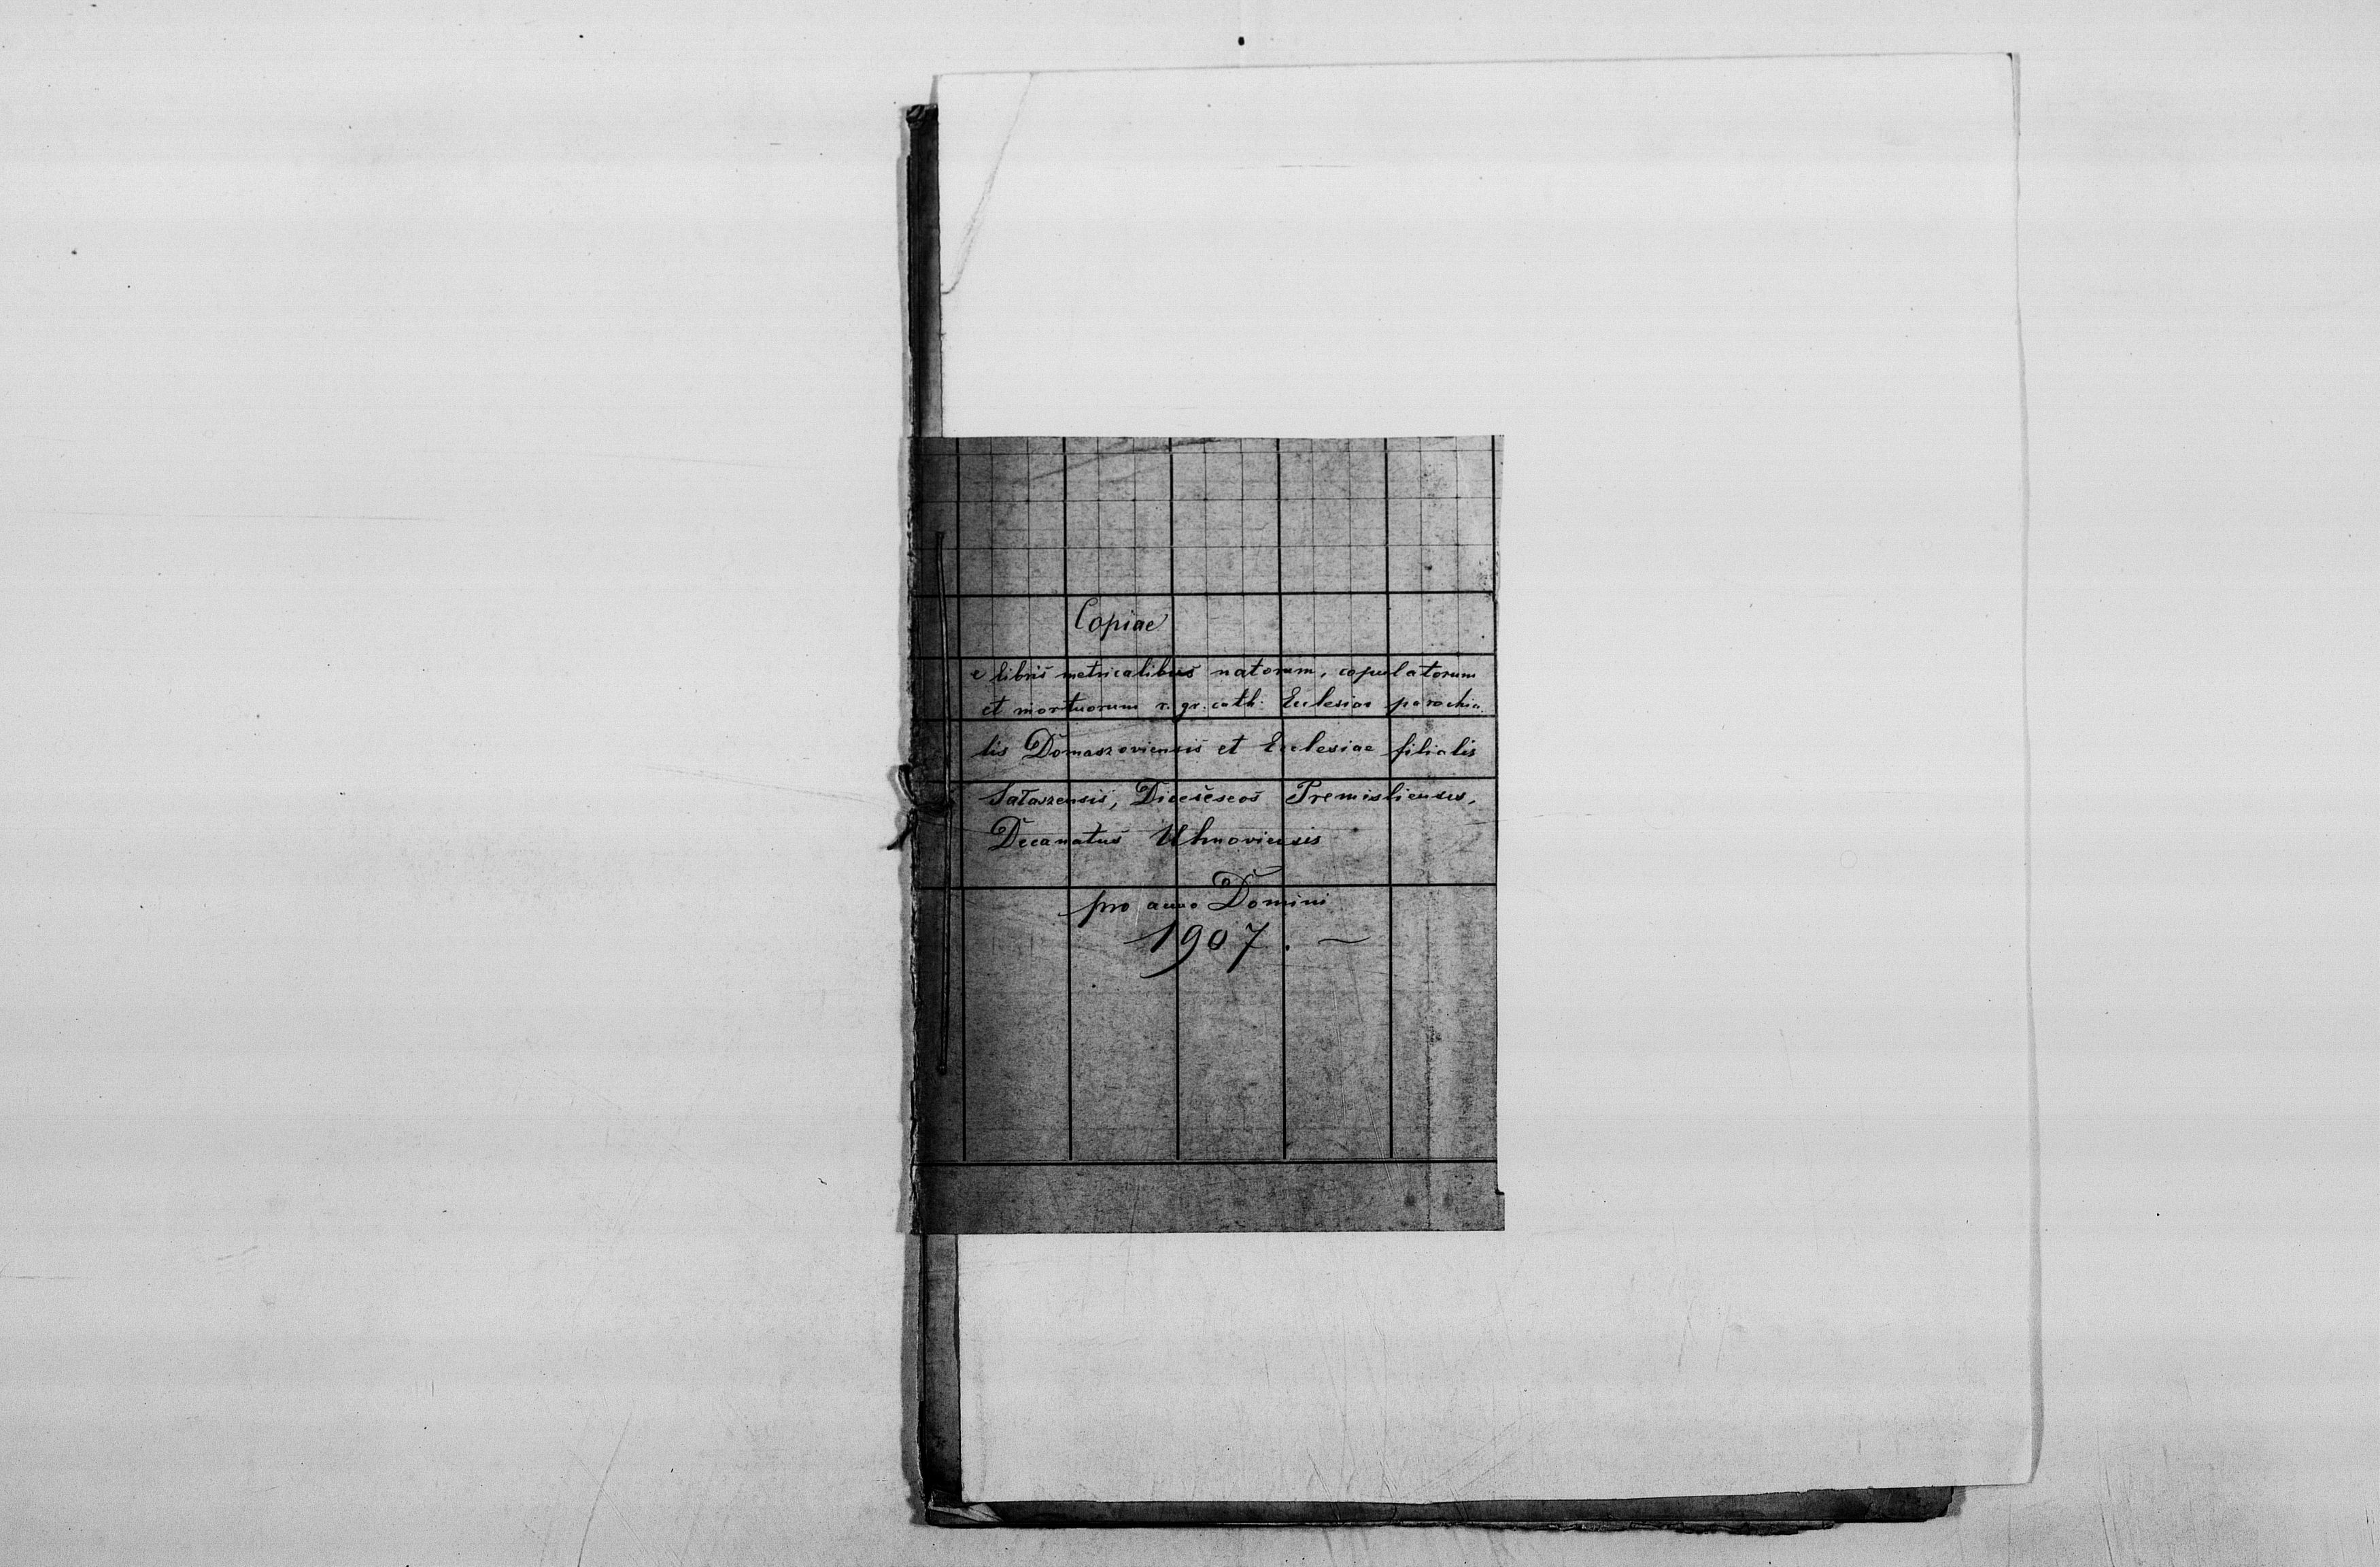 Copiae
e libris metricalibus natorum, copulatorum
et mortuorum r. gr. cath. Ecclesiae parochia
lis Domaszoviensis et Ecclesiae filialis
Sałaszensis, Dieceseos Premisliensis,
Decanatus Uhnoviensis
pro anno Domini
1907. —